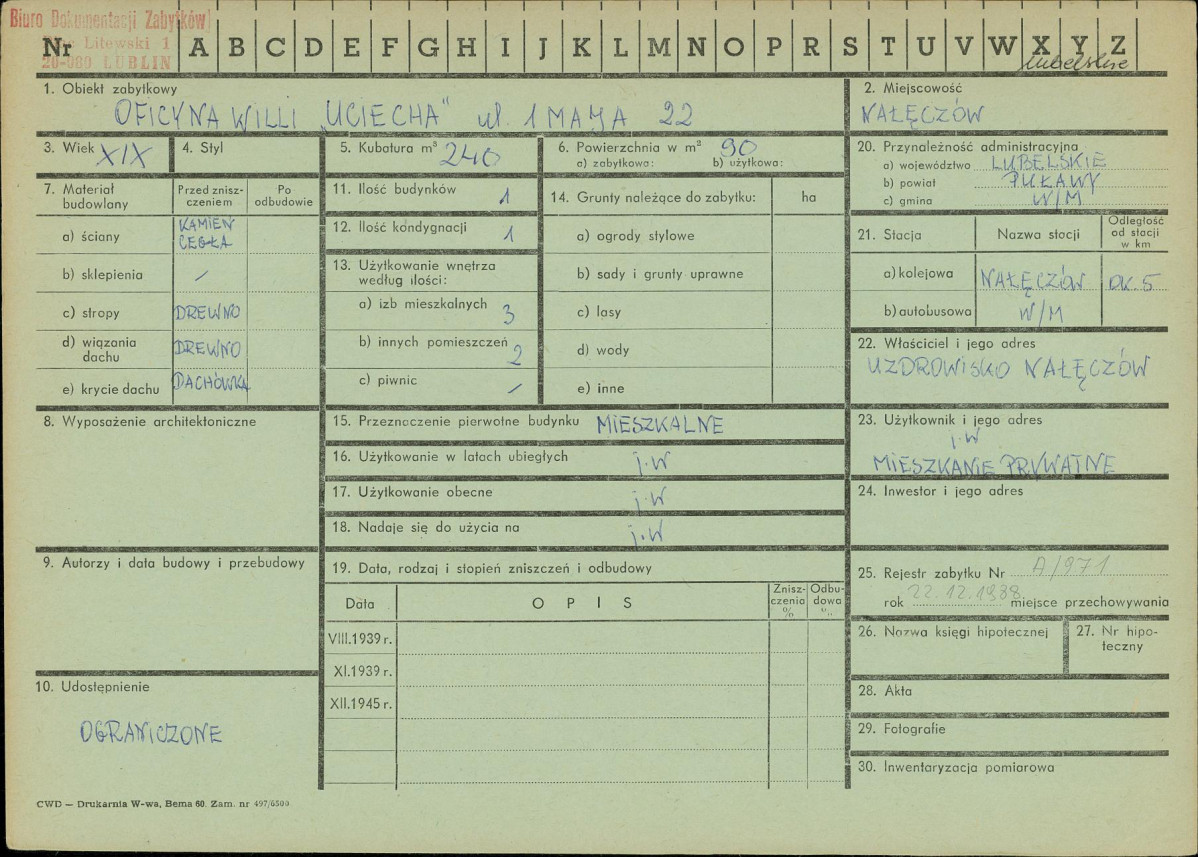 Biuro Dokumentacji Zabytków
Litewski 1
20-080 LUBLIN
Nr A B C D E F G H I J K L M N O P R S T U V W X Y Z
lubelskie
1. Obiekt zabytkowy
OFICYNA WILLI „UCIECHA" ul. 1 MAJA 22
2. Miejscowość
NAŁĘCZÓW
3. Wiek XIX
4. Styl
5. Kubatura m³ 240
6. Powierzchnia w m² 90
a) zabytkowa: b) użytkowa:
20. Przynależność administracyjna
a) województwo LUBELSKIE
b) powiat PUŁAWY
c) gmina W/M
7. Materiał budowlany
Przed zniszczeniem
Po odbudowie
a) ściany KAMIEŃ CEGŁA
b) sklepienia /
c) stropy DREWNO
d) wiązania dachu DREWNO
e) krycie dachu DACHÓWKA
11. Ilość budynków 1
12. Ilość kondygnacji 1
13. Użytkowanie wnętrza według ilości:
a) izb mieszkalnych 3
b) innych pomieszczeń 2
c) piwnic /
14. Grunty należące do zabytku: ha
a) ogrody stylowe
b) sady i grunty uprawne
c) lasy
d) wody
e) inne
21. Stacja Nazwa stacji Odległość od stacji w km
a) kolejowa NAŁĘCZÓW OK. 5
b) autobusowa W/M
22. Właściciel i jego adres
UZDROWISKO NAŁĘCZÓW
8. Wyposażenie architektoniczne
15. Przeznaczenie pierwotne budynku MIESZKALNE
16. Użytkowanie w latach ubiegłych j.w
17. Użytkowanie obecne j.w
18. Nadaje się do użycia na j.w
23. Użytkownik i jego adres
j.w
MIESZKANIE PRYWATNE
24. Inwestor i jego adres
9. Autorzy i data budowy i przebudowy
19. Data, rodzaj i stopień zniszczeń i odbudowy
Data OPIS Zniszczenia % Odbudowa %
VIII.1939 r.
XI.1939 r.
XII.1945 r.
25. Rejestr zabytku Nr A/971
rok 22.12.1988 miejsce przechowywania
26. Nazwa księgi hipotecznej
27. Nr hipoteczny
10. Udostępnienie
OGRANICZONE
28. Akta
29. Fotografie
30. Inwentaryzacja pomiarowa
CWD — Drukarnia W-wa, Bema 60. Zam. nr 497/6500